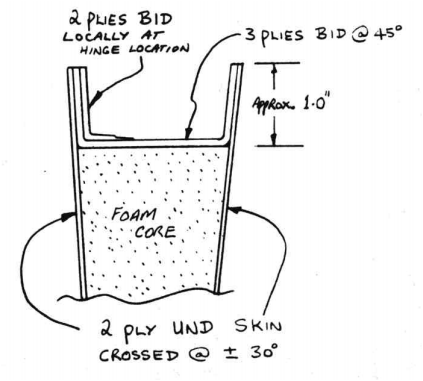 2 PLIES BID
LOCALLY AT
HINGE LOCATION
3 PLIES BID @ 45°
APPROX. 1.0"
FOAM
CORE
2 PLY UND SKIN
CROSSED @ ± 30°